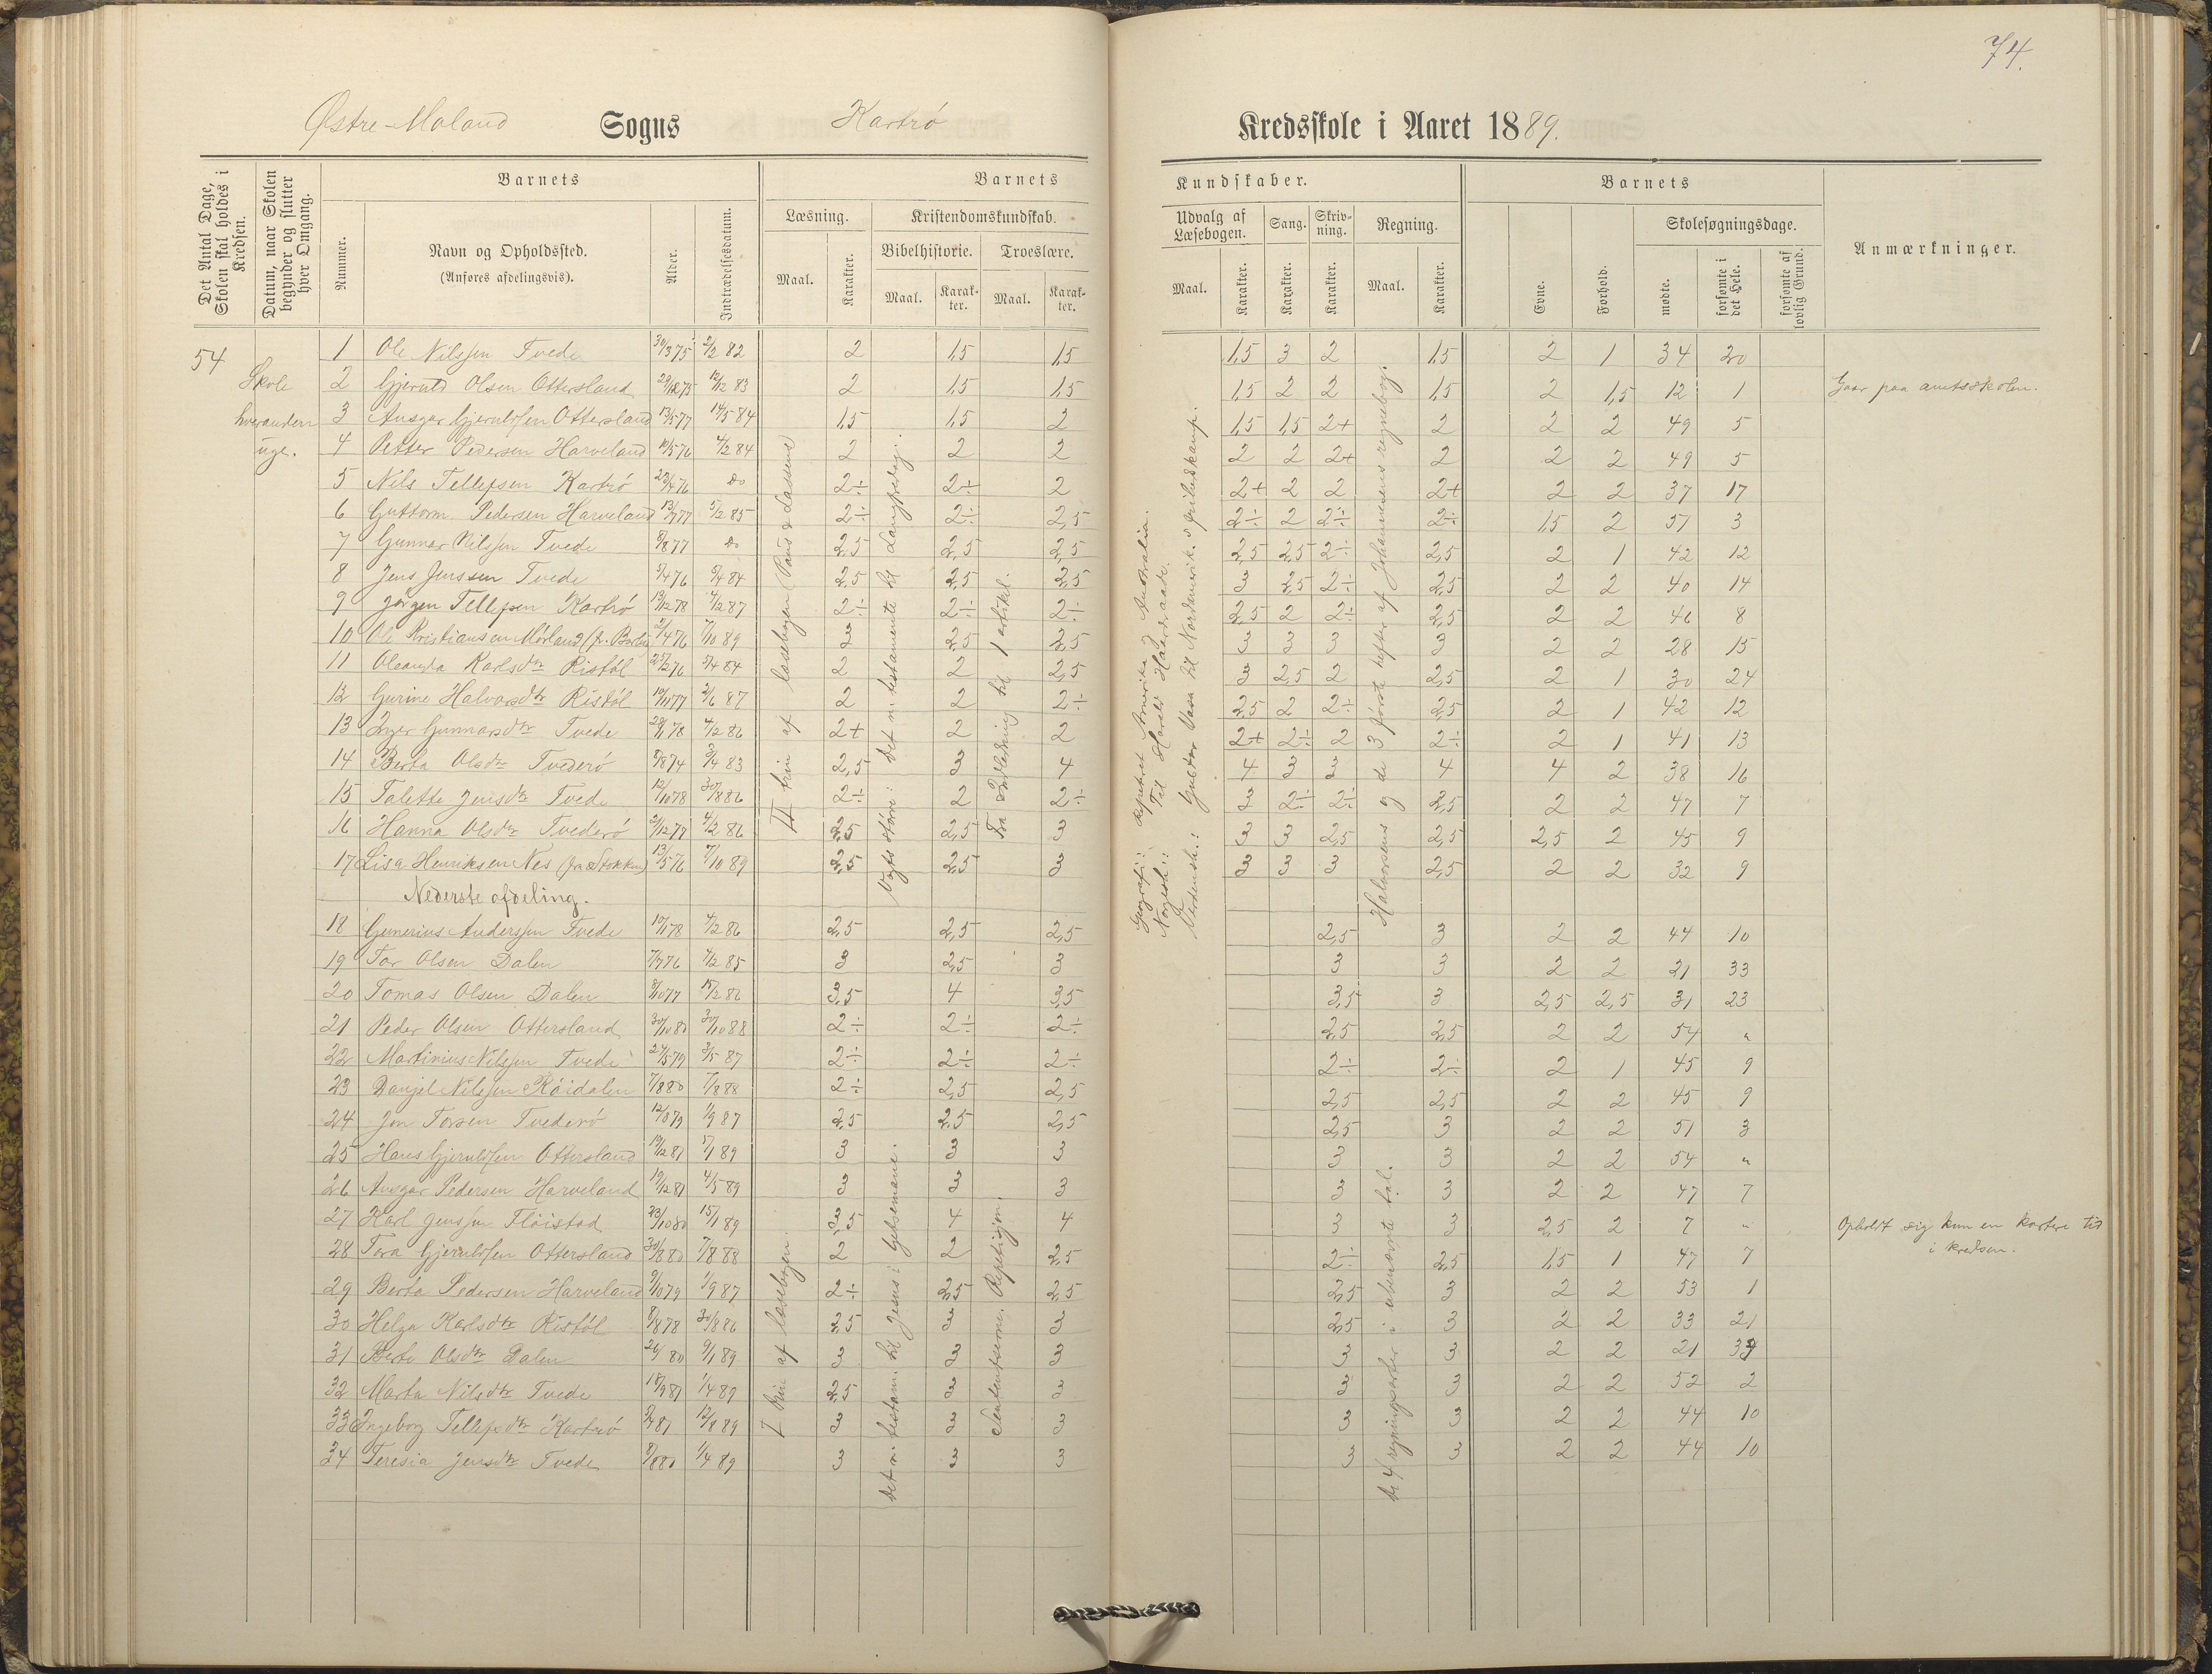 74.
Østre-Moland Sogns Kartrø Kredsskole i Aaret 1889.
Det Antal Dage, Skolen skal holdes i Kredsen.
Datum, naar Skolen begynder og slutter hver Omgang.
Barnets
Nummer.
Navn og Opholdssted.
(Anføres afdelingsvis).
Alder.
Indtrædelsesdatum.
Barnets Kundskaber.
Læsning.
Maal.
Karakter.
Kristendomskundskab.
Bibelhistorie.
Maal.
Karakter.
Troeslære.
Maal.
Karakter.
Udvalg af Læsebogen.
Maal.
Karakter.
Sang.
Karakter.
Skrivning.
Karakter.
Regning.
Maal.
Karakter.
Barnets
Evne.
Forhold.
Skolesøgningsdage.
mødte.
forsømte i det Hele.
forsømte af lovlig Grund.
Anmærkninger.
54
Skole
hveranden
uge.
1 Ole Nilssen Tvede 30/3 75 2/2 82 2 1,5 1,5 1,5 3 2 1,5 2 1 34 20
2 Gjeruld Olsen Ottersland 29/12 75 12/12 83 2 1,5 1,5 1,5 2 2 1,5 2 1,5 12 1 Gaar paa amtsskolen.
3 Ansgar Gjeruldsen Ottersland 13/5 77 14/5 84 1,5 1,5 2 1,5 1,5 2+ 2 2 2 49 5
4 Petter Pedersen Harveland 10/5 76 4/2 84 2 2 2 2 2 2+ 2 2 2 49 5
5 Nils Tellefsen Kartrø 23/4 76 do 2÷ 2÷ 2 2+ 2 2 2+ 2 2 37 17
6 Guttorm Pedersen Harveland 13/7 77 5/2 85 2÷ 2÷ 2,5 2÷ 2 2÷ 2÷ 1,5 2 51 3
7 Gunnar Nilssen Tvede 8/8 77 do 2,5 2,5 2,5 2,5 2,5 2÷ 2,5 2 1 42 12
8 Jens Jenssen Tvede 5/4 76 9/4 84 2,5 2,5 2,5 3 2,5 2÷ 2,5 2 2 40 14
9 Jørgen Tellefsen Kartrø 19/12 78 4/2 87 2÷ 2÷ 2÷ 2,5 2 2÷ 2,5 2 2 46 8
10 Ole Kristiansen Mørland 2/4 76 7/10 89 3 2,5 2,5 3 3 3 3 2 2 28 15
11 Oleanda Karlsdtr Ristøl 25/2 76 9/4 84 2 2 2,5 3 2,5 2 2,5 2 1 30 24
12 Gurine Halvorsdtr Ristøl 10/11 77 2/6 87 2 2 2÷ 2,5 2 2÷ 2,5 2 1 42 12
13 Inger Gunnarsdtr Tvede 29/1 78 4/2 86 2+ 2 2 2+ 2÷ 2 2÷ 2 1 41 13
14 Berta Olsdtr Tvederø 9/8 74 3/4 83 2,5 3 4 4 3 3 4 4 2 38 16
15 Talette Jensdtr Tvede 12/10 78 30/8 86 2÷ 2 2÷ 3 2÷ 2÷ 2,5 2 2 47 7
16 Hanna Olsdtr Tvederø 2/12 77 4/2 86 2,5 2,5 3 3 3 2,5 2,5 2,5 2 45 9
17 Lisa Henriksen Nes (fra Stokken) 13/5 76 7/10 89 2,5 2,5 3 3 3 3 2,5 2 2 32 9
Nederste afdeling.
18 Gunerius Anderssen Tvede 10/1 78 4/2 86 2,5 2,5 2,5 2,5 3 2 2 44 10
19 Tor Olsen Dalen 7/7 76 4/2 85 3 2,5 3 3 3 2 2 21 33
20 Tomas Olsen Dalen 8/10 77 15/2 86 3,5 4 3,5 3,5 3 2,5 2,5 31 23
21 Peder Olsen Ottersland 30/10 80 30/10 88 2÷ 2÷ 2÷ 2,5 2,5 2 2 54 "
22 Martinius Nilssen Tvede 24/5 79 3/5 87 2÷ 2÷ 2÷ 2÷ 2÷ 2 1 45 9
23 Danjel Nilssen Røidalen 7/8 80 7/8 88 2÷ 2,5 2,5 2,5 2,5 2 2 45 9
24 Jon Torsen Tvederø 12/10 79 1/9 87 2,5 2,5 2,5 2,5 3 2 2 51 3
25 Hans Gjeruldsen Ottersland 19/12 81 17/1 89 3 3 3 3 3 2 2 54 "
26 Ansgar Pedersen Harveland 19/12 81 4/5 89 3 3 3 3 3 2 2 47 7
27 Karl Jenssen Fløistad 23/10 80 15/1 89 3,5 4 4 3 3 2,5 2 7 " Opholdt sig kun en kortere tid
i kredsen.
28 Tora Gjeruldsen Ottersland 30/8 80 7/8 88 2 2 2,5 2÷ 2,5 1,5 1 47 7
29 Berta Pedersen Harveland 9/10 79 1/9 87 2÷ 2,5 2,5 2,5 3 2 2 53 1
30 Helga Karlsdtr Ristøl 8/8 78 30/8 86 2,5 3 3 2,5 3 2 2 33 21
31 Berte Olsdtr Dalen 80 9/1 89 3 3 3 3 3 2 2 21
32 Marta Nilsdtr Tvede 18/9 81 1/4 89 2,5 3 3 3 3 2 2 52 2
33 Ingeborg Tellefsdtr Kartrø 81 12/8 89 3 3 3 3 3 2 2 44 10
34 Teresia Jensdtr Tvede 8/8 80 1/4 89 3 3 3 3 3 2 2 44 10
II trin af læsebogen (Pauss & Lassens)
Vogts større: Det n. testamente til Langfredag.
Fra Indledning til 1 artikel.
Geografi: Repetert Amerika & Australia.
Norgesh.: Til Harald Haardraade.
Verdensh.: Gustav Vasa til Nordamerik. frihedskamp.
Halvorsens og de 3 første hefter af Johannesens regnebog.
I trin af læsebogen.
Det n. testam. til Jesus i Getsemane.
Sententserne. Repetisjon.
De 4 regningsarter i ubenævnte tal.